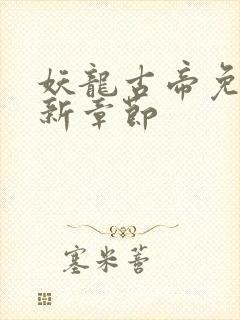 妖龍古帝免
新章節
塞米薈